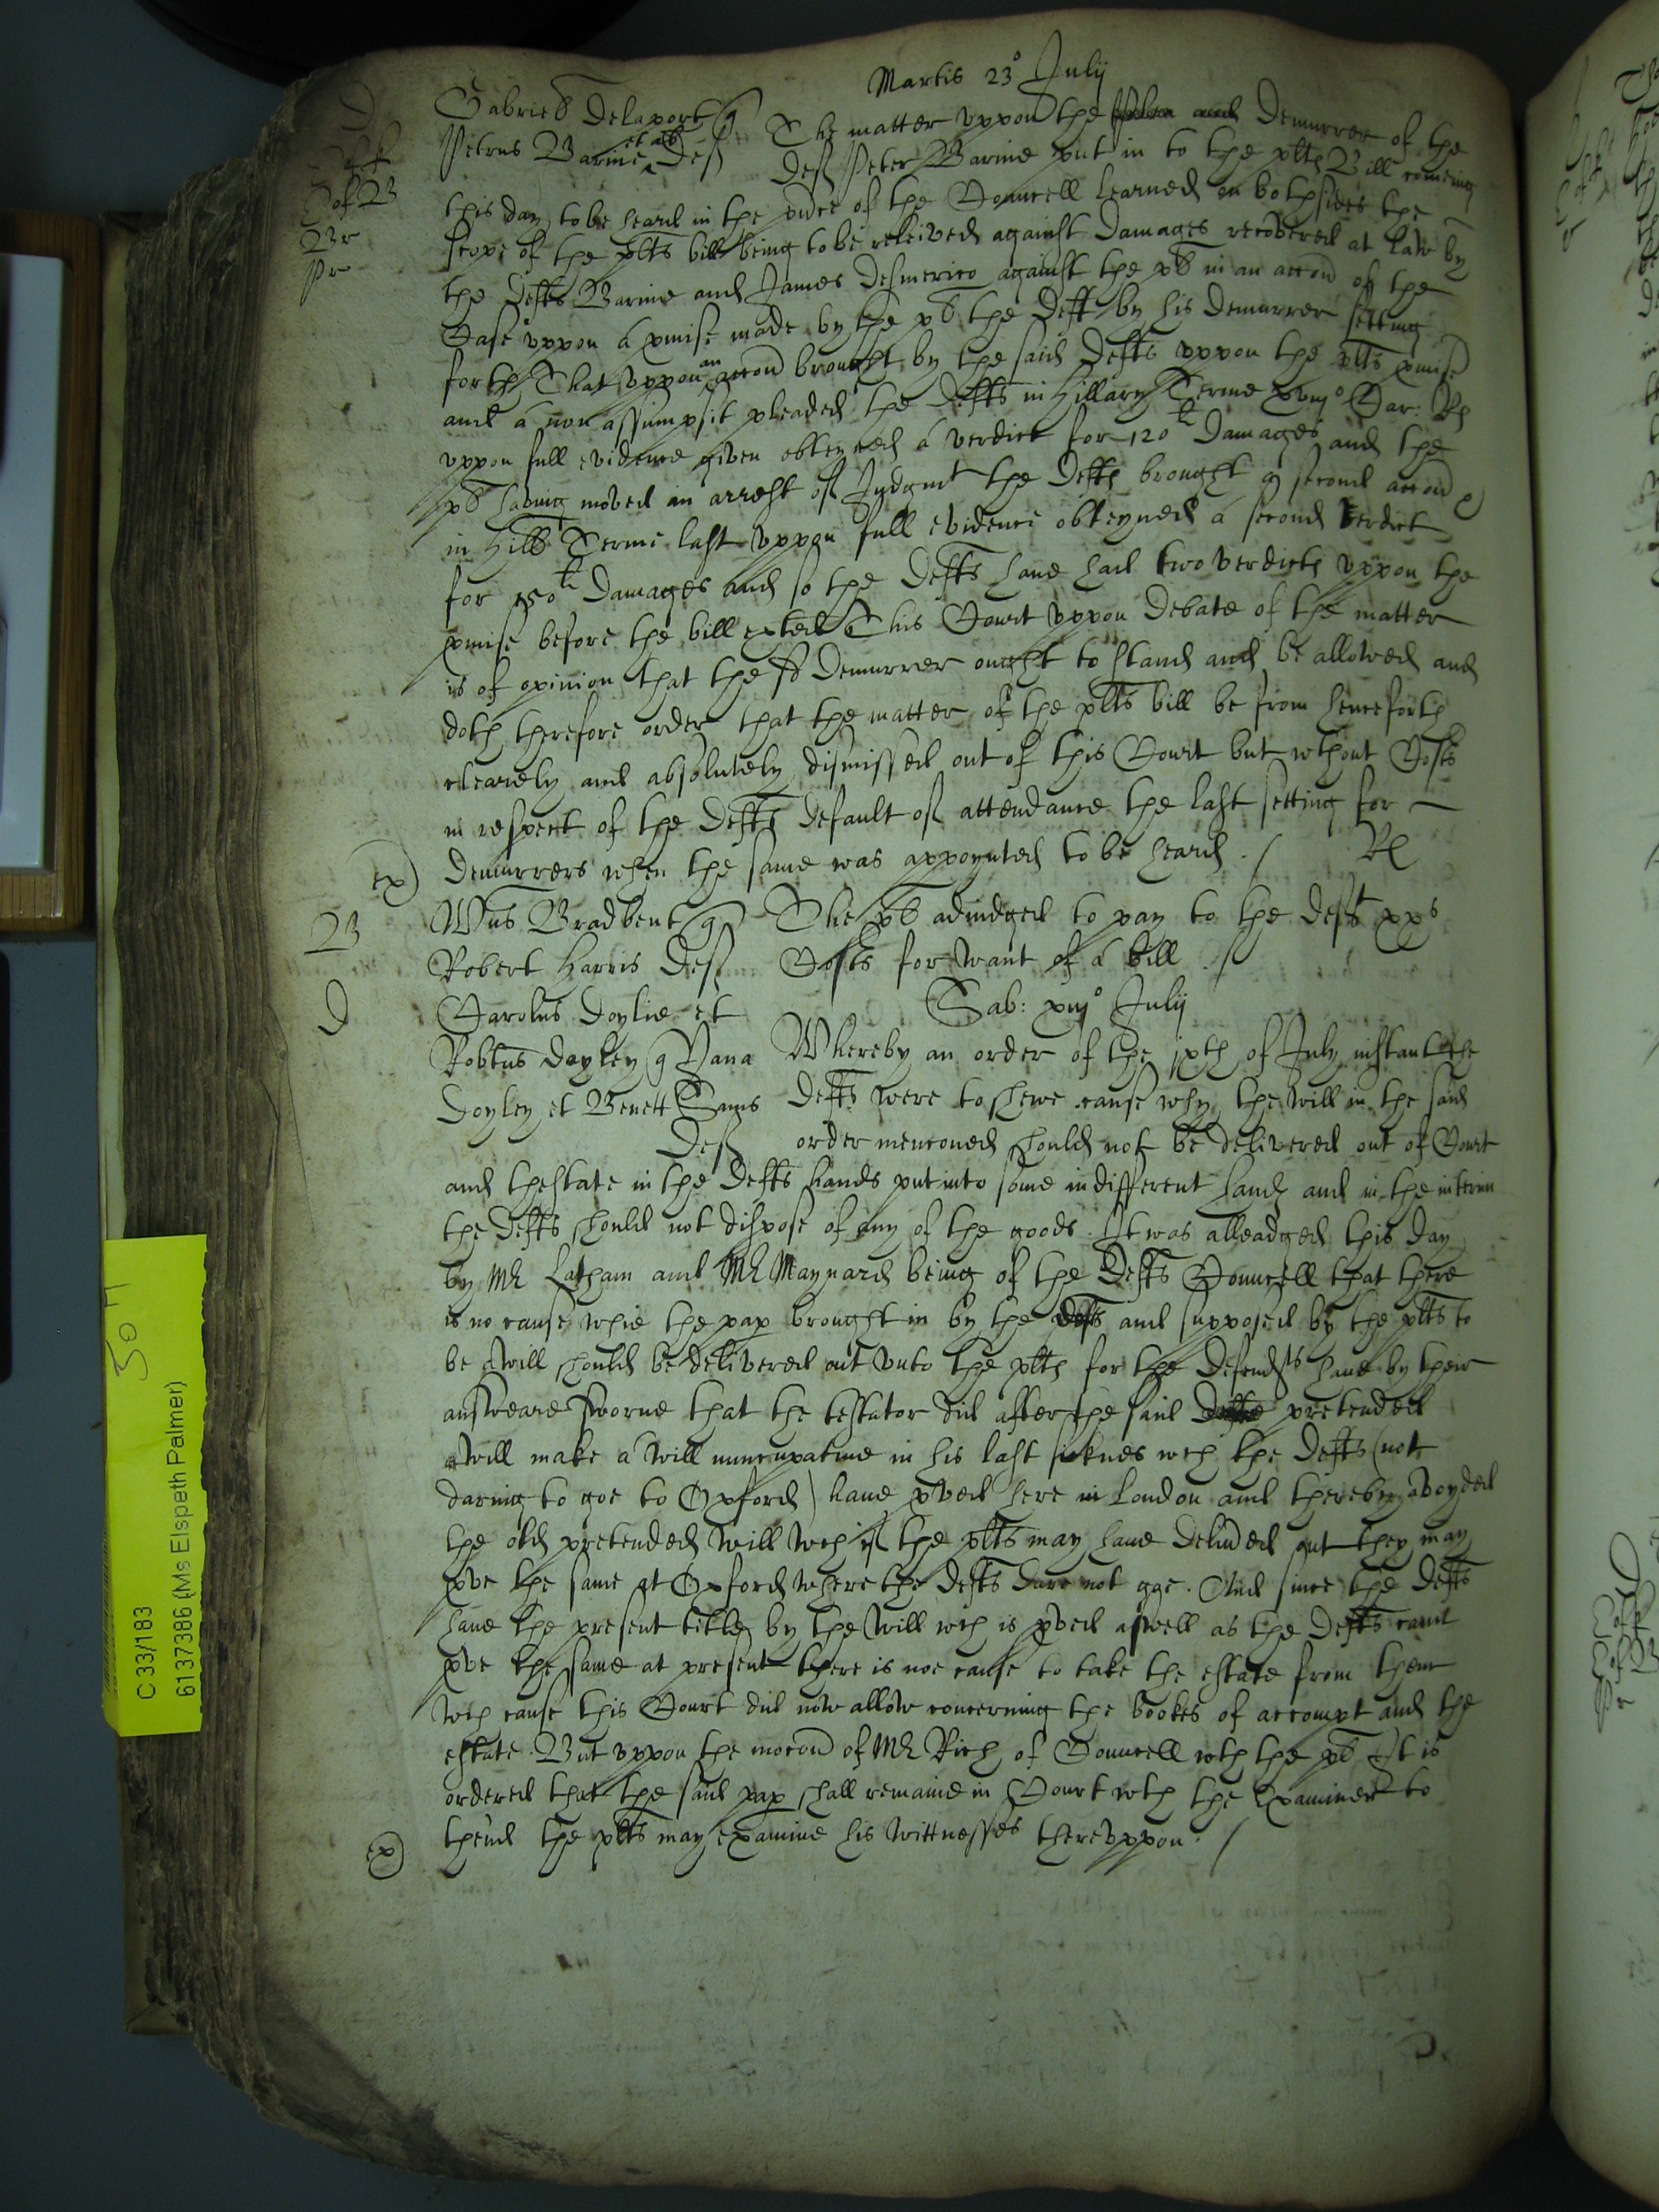 Martis 23° Julij
Gabriel Delaport q The matter vppon the Demurrer of the
Petrus Barine et al Def Def Peter Barine put in to the plts Bill comeing
this day to be heard in the pnce of the Councell learned on bothsides the
scope of the plts bill being to be releived against Damages recovered at law by
the Defts Barine and James Desmerico against the pl in an accon of the
Case vppon a pmise made by the pl the Deft by his Demurrer setting
forth That vppon an accon brought by the said Defts vppon the plts pmise
and a non assumpsit pleaded the Defts in Hillary Terme xviij° Car: Rs
vppon full evidence given obteyned a verdict for 120li Damages and the
pl having moved in arrest of Judgmt the Defts brought a second accon
in Hill Terme last vppon full evidence obteyned a second verdict
for 150li Damages and so the Defts have had two verdicts vppon the
pmise before the bill exted This Court vppon Debate of the matter
is of opinion that the sd Demurrer ought to stand and be allowed and
doth therefore order that the matter of the plts bill be from henceforth
clearely and absolutely dismissed out of this Court but wthout Costs
in respect of the Defts default of attendance the last setting for
Demurrers when the same was appoynted to be heard . / Rl
ex)
23 Wms Bradbent q The pl adiudged to pay to the deft xxs
Robert Harris Def Costs for want of a bill . /
D Carolus Doylie et Sab: xiij° Julij
Robtus Doyley q Jana Whereby an order of the ixth of July instant the
Doyley et Benett Sams Defts were to shewe cause why the will in the said
Def order menconed should not be delivered out of Court
and thestate in the Defts hands put into some indifferent hand and in the interim
the Defts should not dispose of any of the goods. It was alleadged this day
by Mr Latham and Mr Maynard being of the Defts Councell that there
is no cause whie the pap brought in by the defts and supposed by the plts to
be a will should be delivered out vnto the plts for the Defendts have by their
answeare sworne that the testator did after the said pretended
will make a will nuncupative in his last sicknes wch the Defts (not
daring to goe to Oxford) have pved here in London and thereby avoyded
the old pretended will wch if the plts may have deliued out they may
pve the same at Oxford where the Defts dare not goe. And since the Defts
have the present title by the will wch is pved aswell as the Defts cann
pve the same at present there is noe cause to take the estate from them
wch cause this Court did now allow concerning the bookes of accompt and the
estate. But vppon the mocon of Mr Rich of Councell wth the pl It is
ordered that the said pap shall remaine in Court wth the Examiner to
thend the plts may examine his wittnesses therevppon . /
ex)
C 33/183
6137386 (Ms Elspeth Palmer)